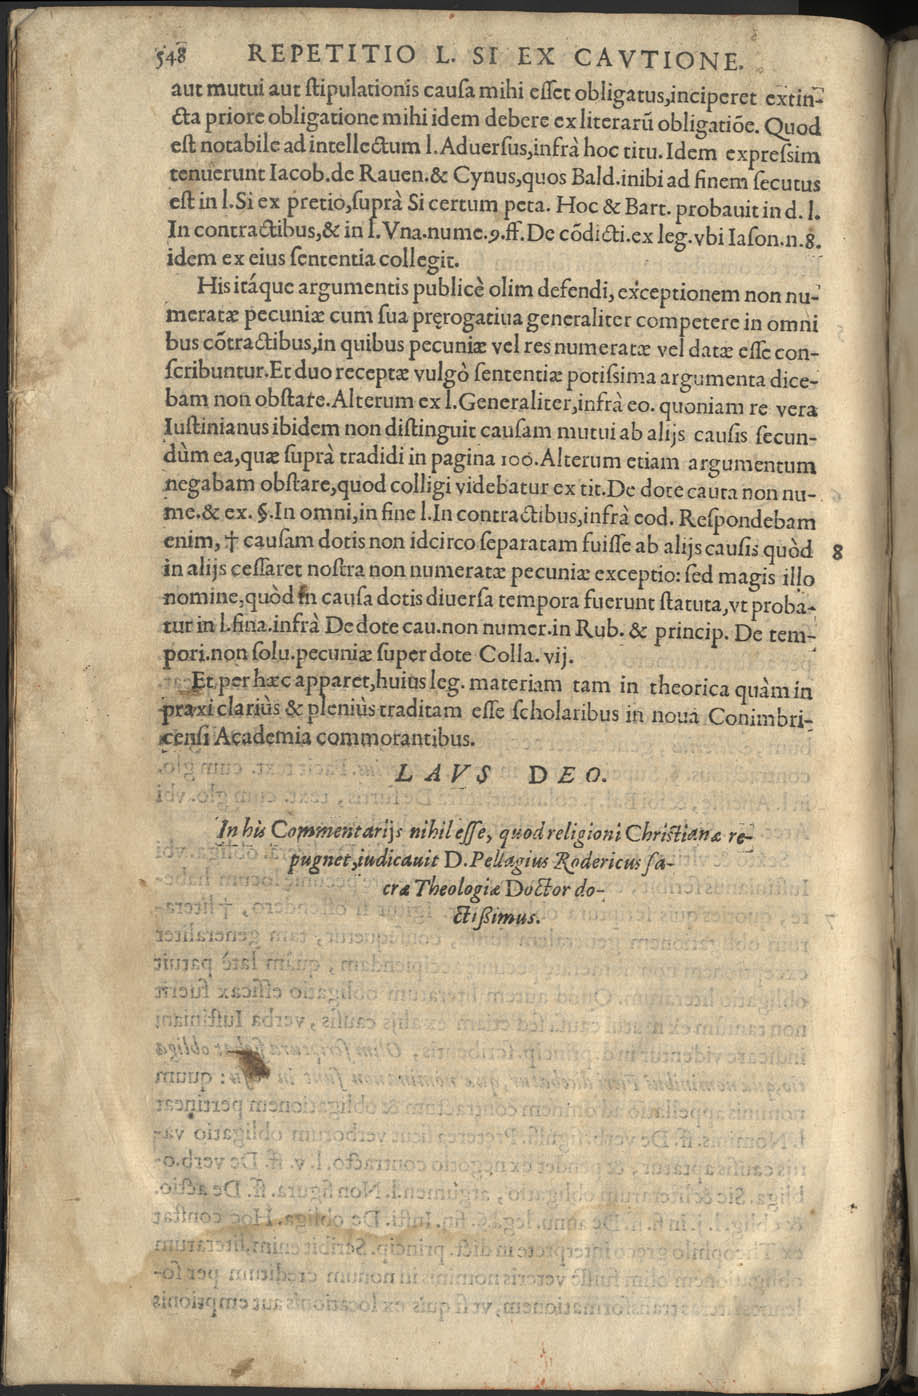 548 REPETITIO L. SI EX CAVTIONE.
aut mutui aut ſtipulationis cauſa mihi eſſet obligatus,inciperet extin-
cta priore obligatione mihi idem debere ex literarũ obligatiõe. Quod
eſt notabile ad intellectum l.Aduerſus,infrà hoc titu.Idem expreſsim
tenuerunt Iacob.de Rauen.& Cynus,quos Bald.inibi ad finem ſecutus
eſt in l.Si ex pretio,ſuprà Si certum peta. Hoc & Bart. probauit in d. l.
In contractibus,& in l.Vna.nume.9.ff.De cõdicti.ex leg.vbi Iaſon.n.8.
idem ex eius ſententia collegit.
His itáque argumentis publicè olim defendi, exceptionem non nu-
meratæ pecuniæ cum ſua pręrogatiua generaliter competere in omni
bus cõtractibus,in quibus pecuniæ vel res numeratæ vel datæ eſſe con-
ſcribuntur.Et duo receptæ vulgò ſententiæ potiſsima argumenta dice-
bam non obſtare.Alterum ex l.Generaliter,infrà eo. quoniam re vera
Iuſtinianus ibidem non diſtinguit cauſam mutui ab alijs cauſis ſecun-
dùm ea,quæ ſuprà tradidi in pagina 100.Alterum etiam argumentum
negabam obſtare,quod colligi videbatur ex tit.De dote cauta non nu-
me.& ex. §.In omni,in fine l.In contractibus,infrà eod. Reſpondebam
enim, † cauſam dotis non idcirco ſeparatam fuiſſe ab alijs cauſis quòd 8
in alijs ceſſaret noſtra non numeratæ pecuniæ exceptio: ſed magis illo
nomine,quòd in cauſa dotis diuerſa tempora fuerunt ſtatuta,vt proba-
tur in l.fina.infrà De dote cau.non numer.in Rub. & princip. De tem-
pori.non ſolu.pecuniæ ſuper dote Colla. vij.
Et per hæc apparet,huius leg. materiam tam in theorica quàm in
praxi clariùs & pleniùs traditam eſſe ſcholaribus in noua Conimbri-
cenſi Academia commorantibus.
LAVS DEO.
In his Commentarijs nihil eſſe, quod religioni Chriſtianæ re-
pugnet,iudicauit D. Pellagius Rodericus ſa-
cræ Theologiæ Doctor do-
ctiſsimus.